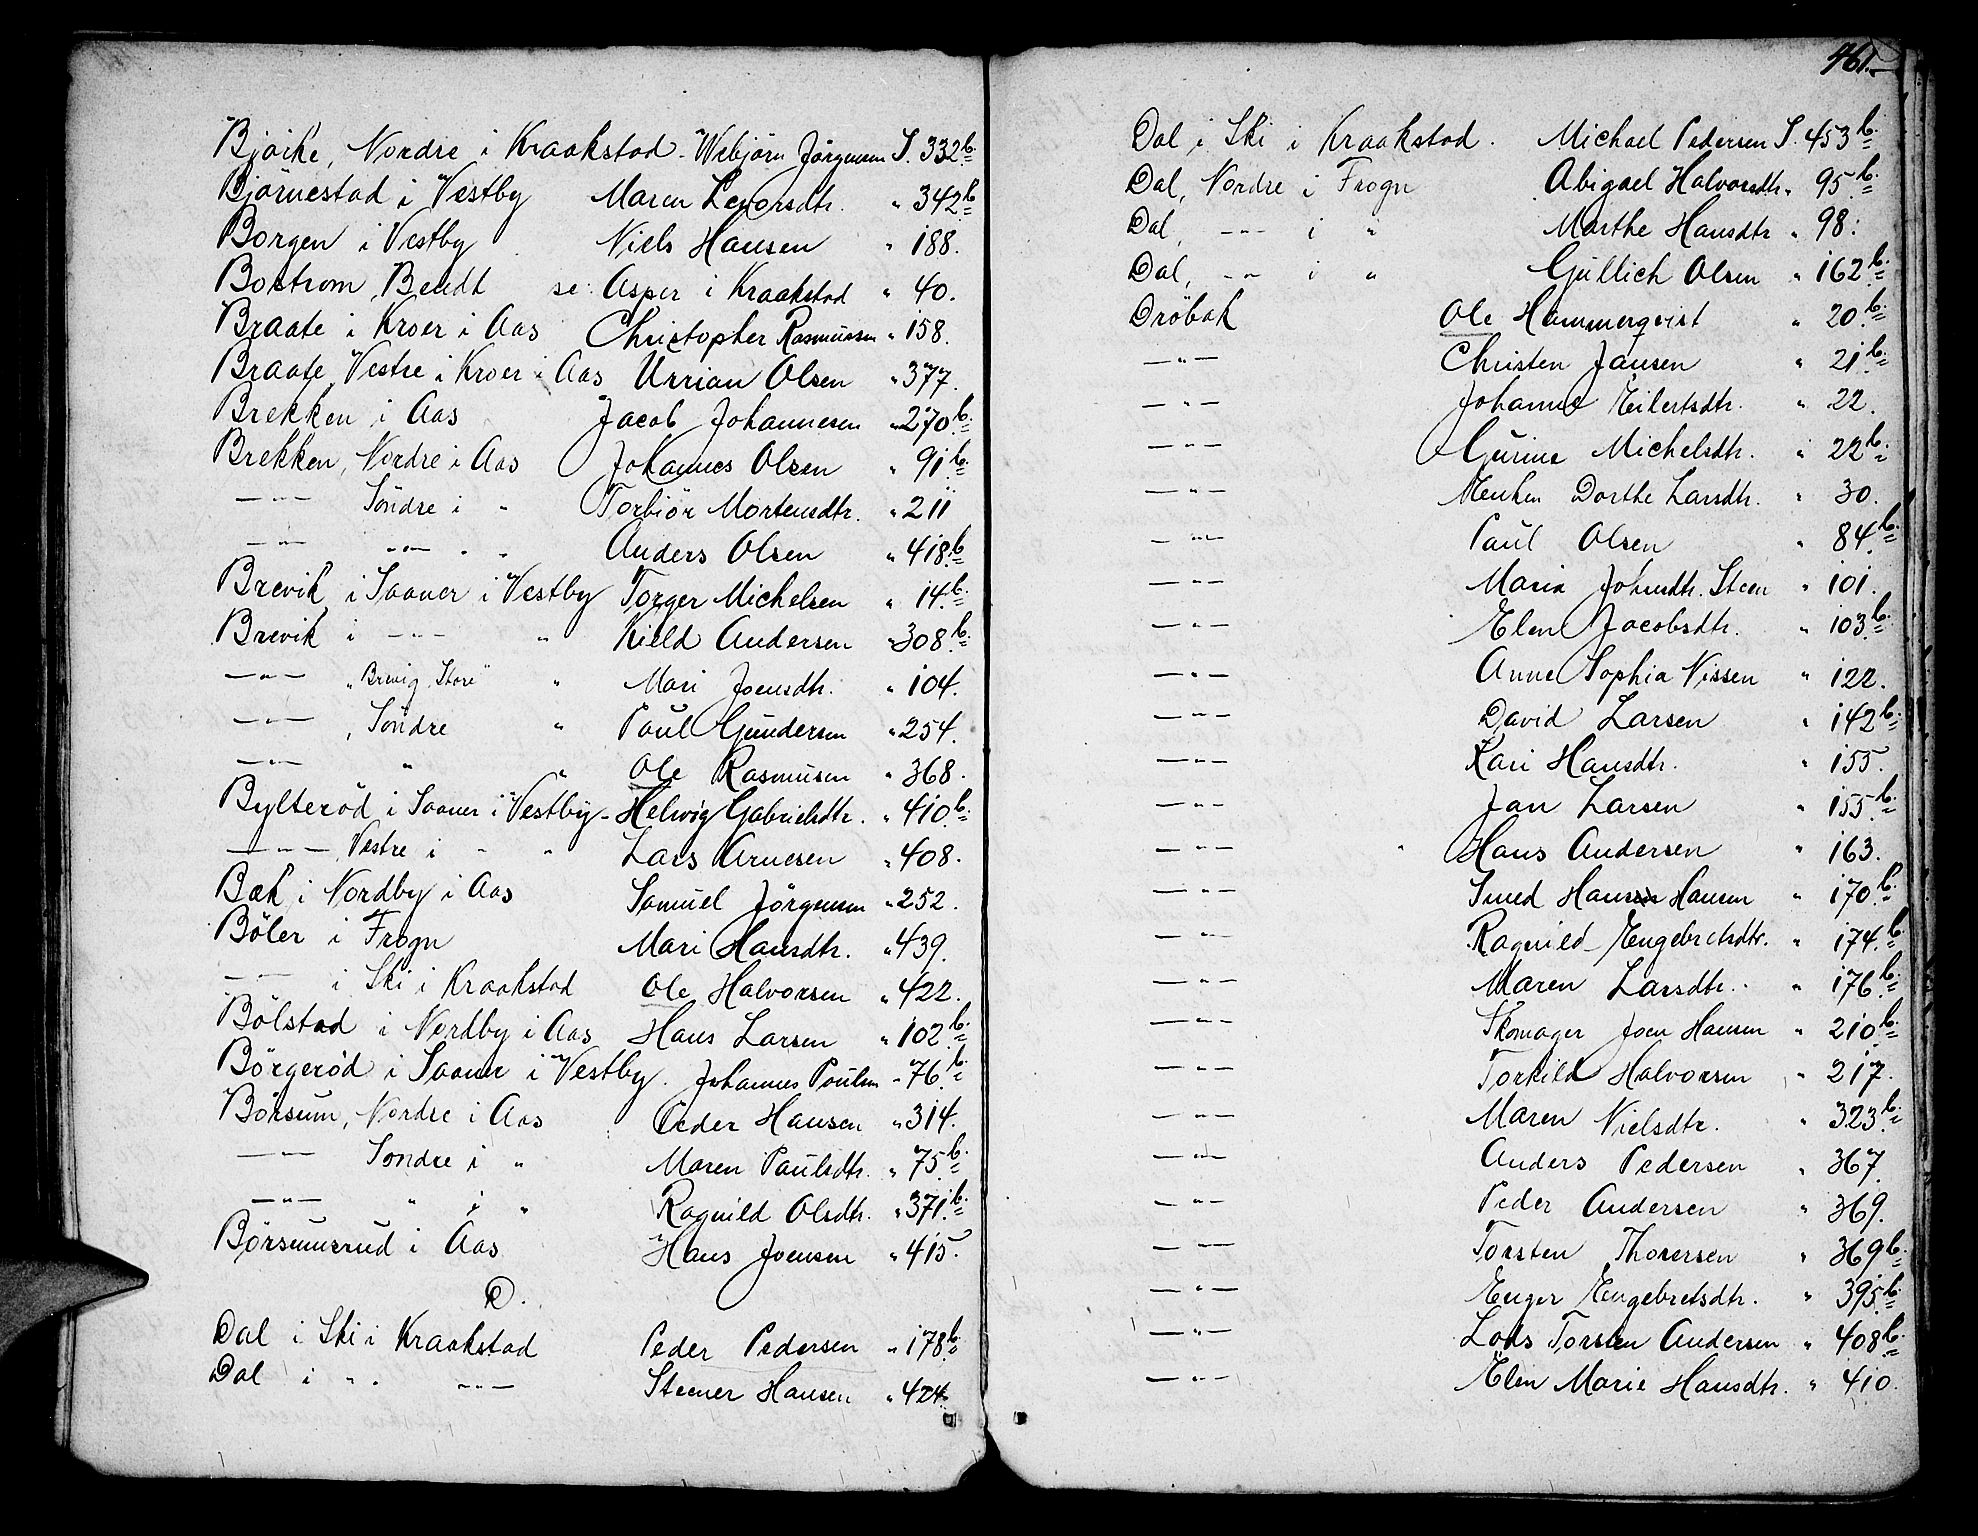 Bjørke, Nordre i Kraakstad - Webjørn Jørgensen S. 332b.
Bjørnestad i Vestby Maren Levorsdtr. " 342b
Borgen i Vestby Niels Hansen " 188.
Bostrom, Bendt se: Asper i Kraakstad " 40.
Braate i Kroer i Aas Christopher Rasmussen " 158.
Braate, Vestre i Kroer i Aas Urrian Olsen " 377.
Brekken i Aas Jacob Johannesen " 270b.
Brekken, Nordre i Aas Johannes Olsen " 91b.
— " — Söndre i " Torbiör Mortensdtr. " 211
— " — " — " " Anders Olsen " 418b
Brevik i Saaner i Vestby Torger Michelsen " 14b.
Brevik i — " — " Kield Andersen " 308b.
— " — "Brevig Store" " Mari Joensdtr. " 104.
— " — , Söndre " Paul Gundersen " 254.
— " — " " Ole Rasmusen " 368.
Bylteröd i Saaner i Vestby - Helwig Gabrielsdtr. " 410b.
— " — Vestre i " " Lars Arnesen " 408.
Bæk i Nordby i Aas Samuel Jörgensen " 252.
Böler i Frogn Mari Hansdtr. " 439.
— " — i Ski i Kraakstad Ole Halvorsen " 422.
Bölstad i Nordby i Aas Hans Larsen " 102b.
Börgeröd i Saaner i Vestby. Johannes Poulsen " 76b.
Börsum, Nordre i Aas Peder Hansen " 314.
— " — Søndre i " Maren Paulsdtr. " 75b.
— " — " i " Ragnild Olsdtr. " 371b.
Børsumsrud i Aas Hans Joensen " 415.
D.
Dal i Ski i Kraakstad Peder Pedersen " 178b.
Dal i " . — " — Steener Hansen " 424.
461.
Dal i Ski i Kraakstad. Michael Pedersen S. 453b.
Dal, Nordre i Frogn Abigael Halvorsdtr. " 95b.
Dal, — " — i " Marthe Hansdtr " 98.
Dal, — " — i " Gullich Olsen " 162b.
Dröbak Ole Hammerqvist " 20b.
— " — Christen Jansen " 21b.
— " — Johanne Eilertsdtr. " 22.
— " — Gurine Michelsdtr. " 22b.
— " — Dorthe Larsdtr. " 30.
— " — Paul Olsen " 84b.
— " — Maria Johnsdtr. Steen " 101.
— " — Elen Jacobsdtr. " 103b.
— " — Anne Sophia Nissen " 122.
— " — David Larsen " 142b.
— " — Kari Hansdtr. " 155.
— " — Jan Larsen " 155b.
— " — Hans Andersen " 163.
— " — Smed Hans Hansen " 170b.
— " — Ragnild Engebretsdtr. " 174b.
— " — Maren Larsdtr. " 176b.
— " — Skomager Joen Hansen " 210b.
— " — Torkild Halvorsen " 217.
— " — Maren Nielsdtr. " 323b.
— " — Anders Pedersen " 367.
— " — Peder Andersen " 369.
— " — Torsten Thorersen " 369b.
— " — Enger Engebretsdtr. " 395b.
— " — Lods Torsten Andersen " 408b.
— " — Elen Marie Hansdtr. " 410.